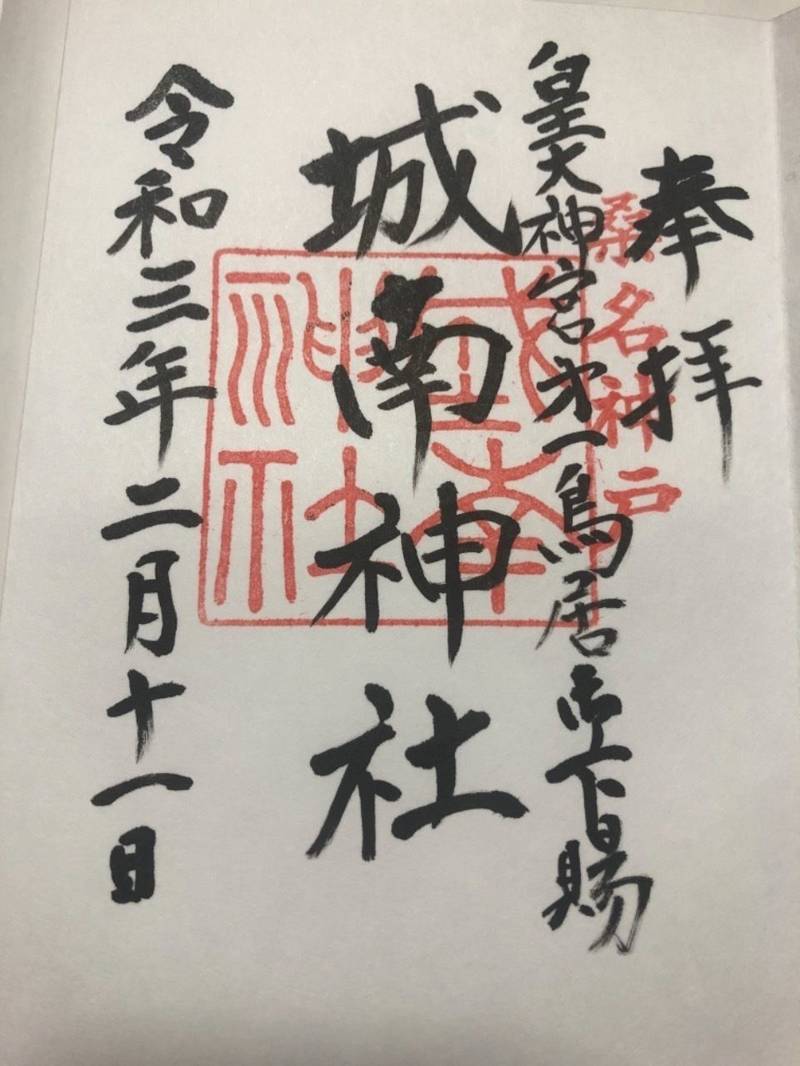 奉拝
桑名神戸
皇大神宮第一鳥居御下賜
城南神社
城南神社
令和三年二月十一日